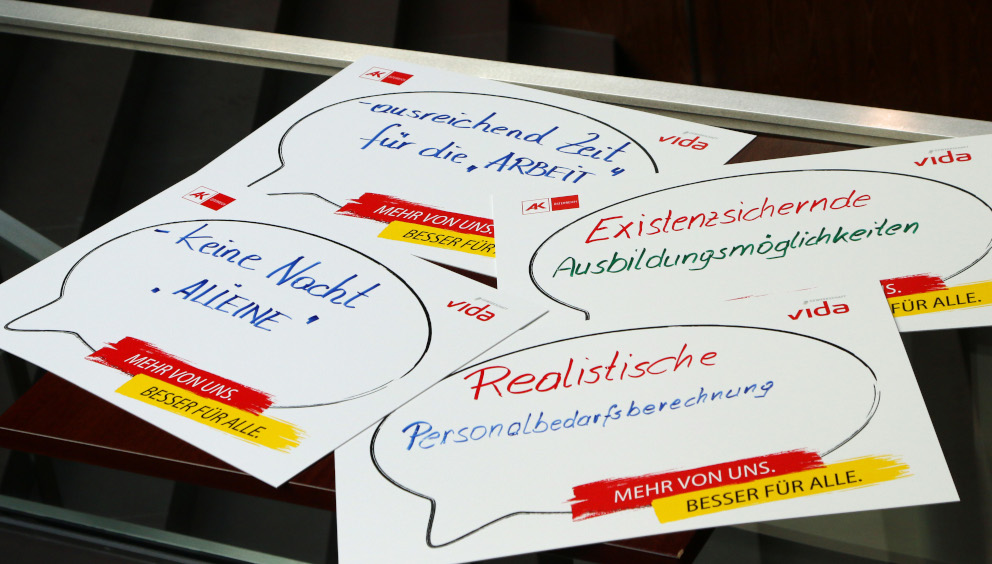 AK
- ausreichend Zeit
für die „ARBEIT"
vida
MEHR VON UNS.
BESSER FÜR
AK
vida
Existenzsichernde
Ausbildungsmöglichkeiten
S.
FÜR ALLE.
AK
- keine Nacht
„ALLEINE"
vida
MEHR VON UNS.
BESSER FÜR ALLE.
vida
Realistische
Personalbedarfsberechnung
MEHR VON UNS.
BESSER FÜR ALLE.